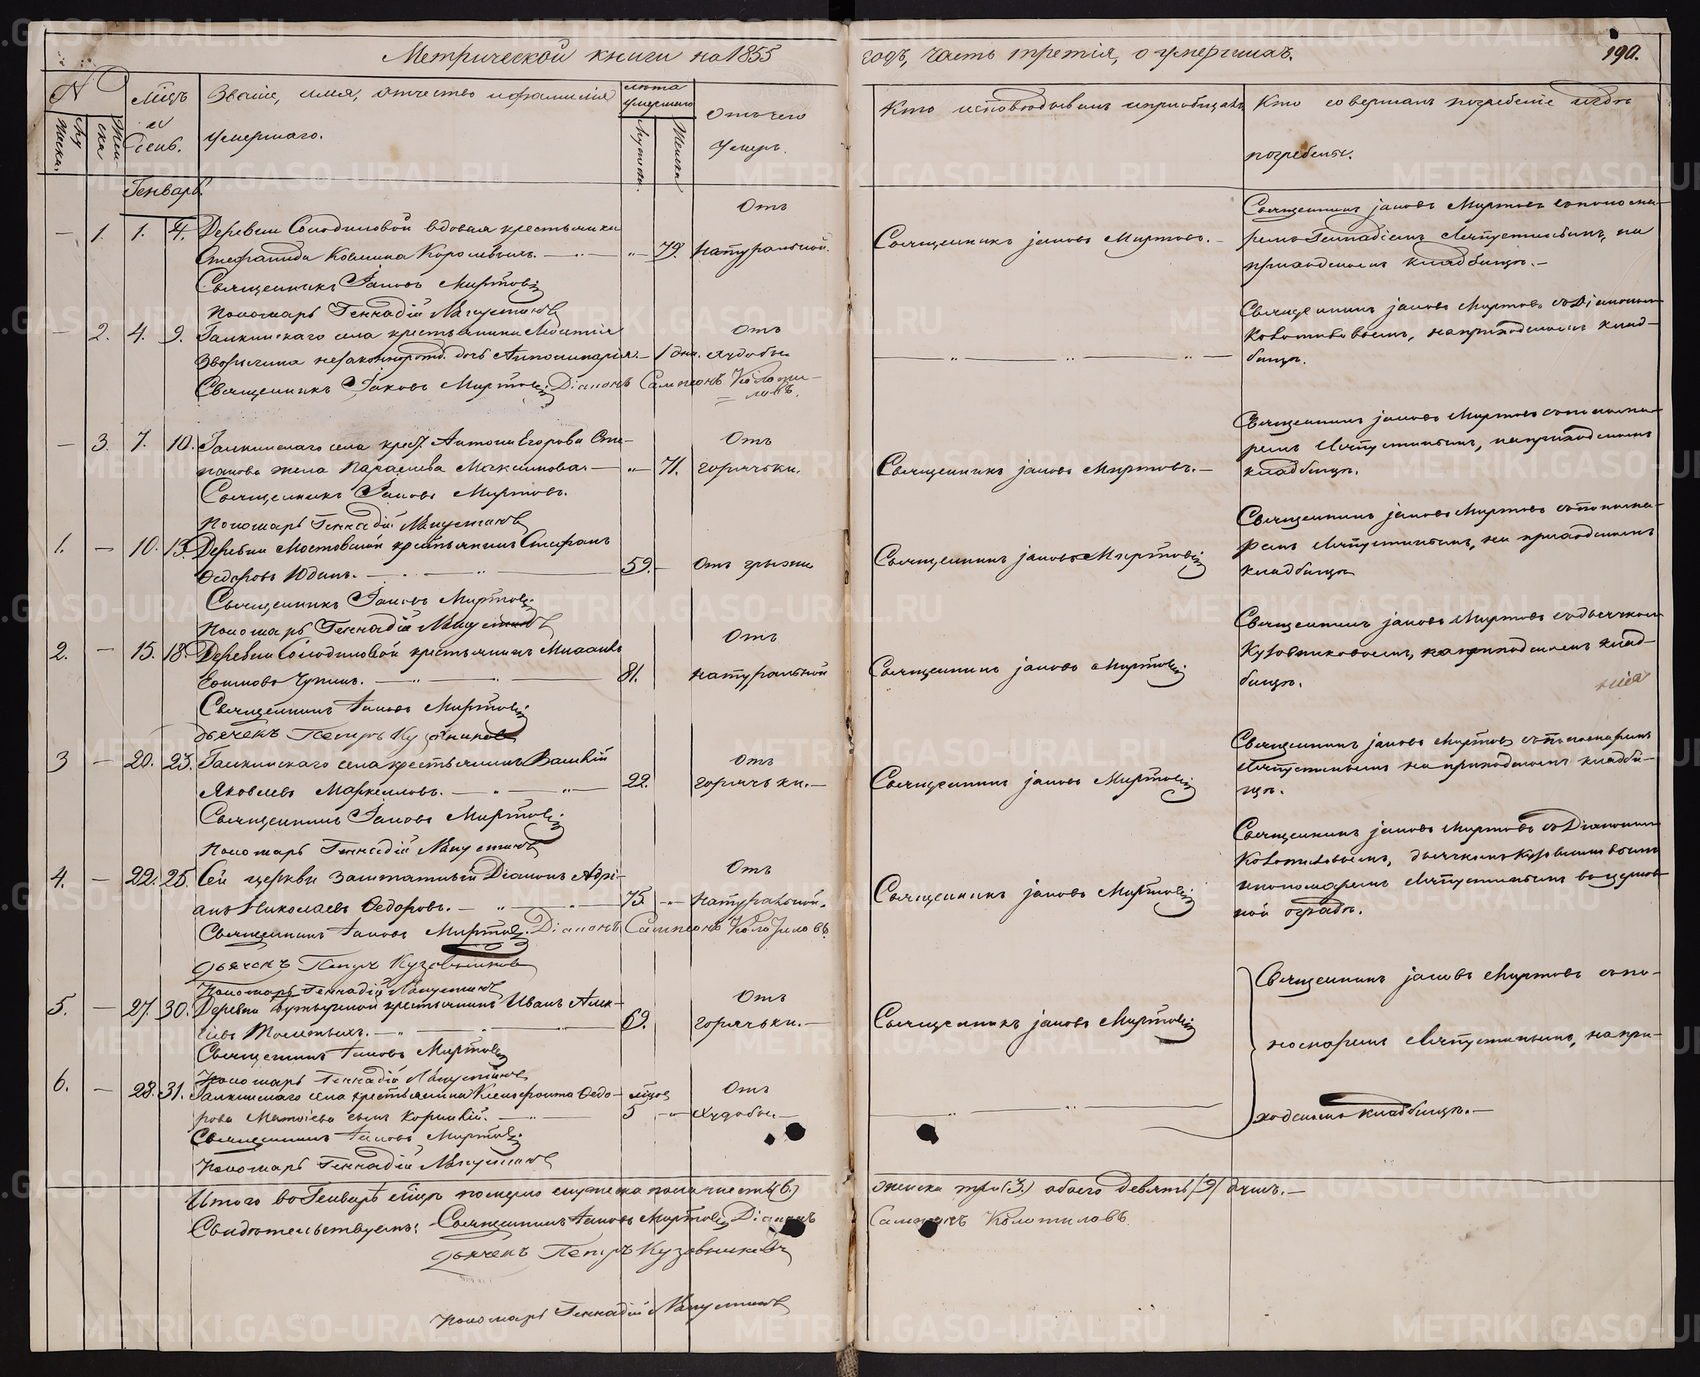 Метрической книги на 1855
годъ, часть третія, о умершихъ.
190.
№
Муж
Женска
Мѣсяцъ и день.
Званіе, имя, отчество и фамилія
умершаго.
лѣта умершаго
Мужска.
Женска
Отъ чего
умеръ.
Кто исповѣдывалъ и пріобщалъ
Кто совершалъ погребеніе и гдѣ
погребены.
Генварь.
— 1. 1. 4. Деревни Солодиловой вдовая крестьянка
Стефанида Козмина Королевыхъ. — „ — 79.
Отъ
натуральной.
Священникъ Іаковъ Миртовъ. —
Священникъ Іаковъ Миртовъ съ понома-
ремъ Геннадіемъ на
приходскомъ кладбищѣ. —
Священникъ Іаковъ Миртовъ
Пономарь Геннадій
— 2. 4. 9. Галкинскаго села крестьянина
незаконнорожд. дочь Аполинарія. — 1 дня.
Отъ
худобы
Священникъ Іаковъ Миртовъ съ Діакономъ
Колотиловымъ, на приходскомъ клад-
бищѣ.
Священникъ Іаковъ Миртовъ. Діаконъ Сампсонъ Колоти-
ловъ.
— 3. 7. 10. Галкинскаго села крест. Антона Егорова Сте-
панова жена Параскева Максимова. — „ — 71.
Отъ
горячьки.
Священникъ Іаковъ Миртовъ. —
Священникъ Іаковъ Миртовъ съ понома-
ремъ на приходскомъ
кладбищѣ.
Священникъ Іаковъ Миртовъ.
Пономарь Геннадій
1. — 10. 13. Деревни Мостовской крестьянинъ Стефанъ
Ѳедоровъ Юдинъ. — 59. —
Отъ грыжи
Священникъ Іаковъ Миртовъ
Священникъ Іаковъ Миртовъ съ понома-
ремъ на приходскомъ
кладбищѣ
Священникъ Іаковъ Миртовъ.
Пономарь Геннадій
2. — 15. 18. Деревни Солодиловой крестьянинъ Михаилъ
Ефимовъ Чупинъ. — 81.
Отъ
натуральной
Священникъ Іаковъ Миртовъ.
Священникъ Іаковъ Миртовъ съ дьячкомъ
Кузовниковымъ, на приходскомъ клад-
бищѣ.
Священникъ Іаковъ Миртовъ
дьячекъ Петръ Кузовниковъ
3 — 20. 23. Галкинскаго села крестьянинъ Василій
Яковлевъ Маркеловъ. — 22.
Отъ
горячьки. —
Священникъ Іаковъ Миртовъ
Священникъ Іаковъ Миртовъ съ пономаремъ
на приходскомъ кладби-
щѣ.
Священникъ Іаковъ Миртовъ.
Пономарь Геннадій
4. — 22. 25. Сей церкви заштатный Діаконъ Адрі-
анъ Николаевъ Ѳедоровъ. — 75. —
Отъ
натуральной.
Священникъ Іаковъ Миртовъ
Священникъ Іаковъ Миртовъ съ Діакономъ
Колотиловымъ, дьячкомъ Кузовниковымъ
и пономаремъ въ церков-
ной оградѣ.
Священникъ Іаковъ Миртовъ. Діаконъ Сампсонъ Колотиловъ
дьячекъ Петръ Кузовниковъ
Пономарь Геннадій
5. — 27. 30. Деревни крестьянинъ Иванъ Алек-
сѣевъ — 69.
Отъ
горячьки. —
Священникъ Іаковъ Миртовъ
Священникъ Іаковъ Миртовъ съ по-
номаремъ на при-
ходскомъ кладбищѣ. —
Священникъ Іаковъ Миртовъ
Пономарь Геннадій
6. — 28. 31. Галкинскаго села крестьянина Ксенофонта Ѳедо-
рова сынъ — мѣсяц. 5
Отъ
худобы —
Священникъ Іаковъ Миртовъ.
Пономарь Геннадій
Итого въ Генварѣ мѣсяцѣ померло мужеска пола шесть (6.)
женска три (3.) обоего девять (9) душъ. —
Свидѣтельствуемъ: Священникъ Іаковъ Миртовъ Діаконъ
Сампсонъ Колотиловъ.
дьячекъ Петръ Кузовниковъ
Пономарь Геннадій
METRIKI.GASO-URAL.RU